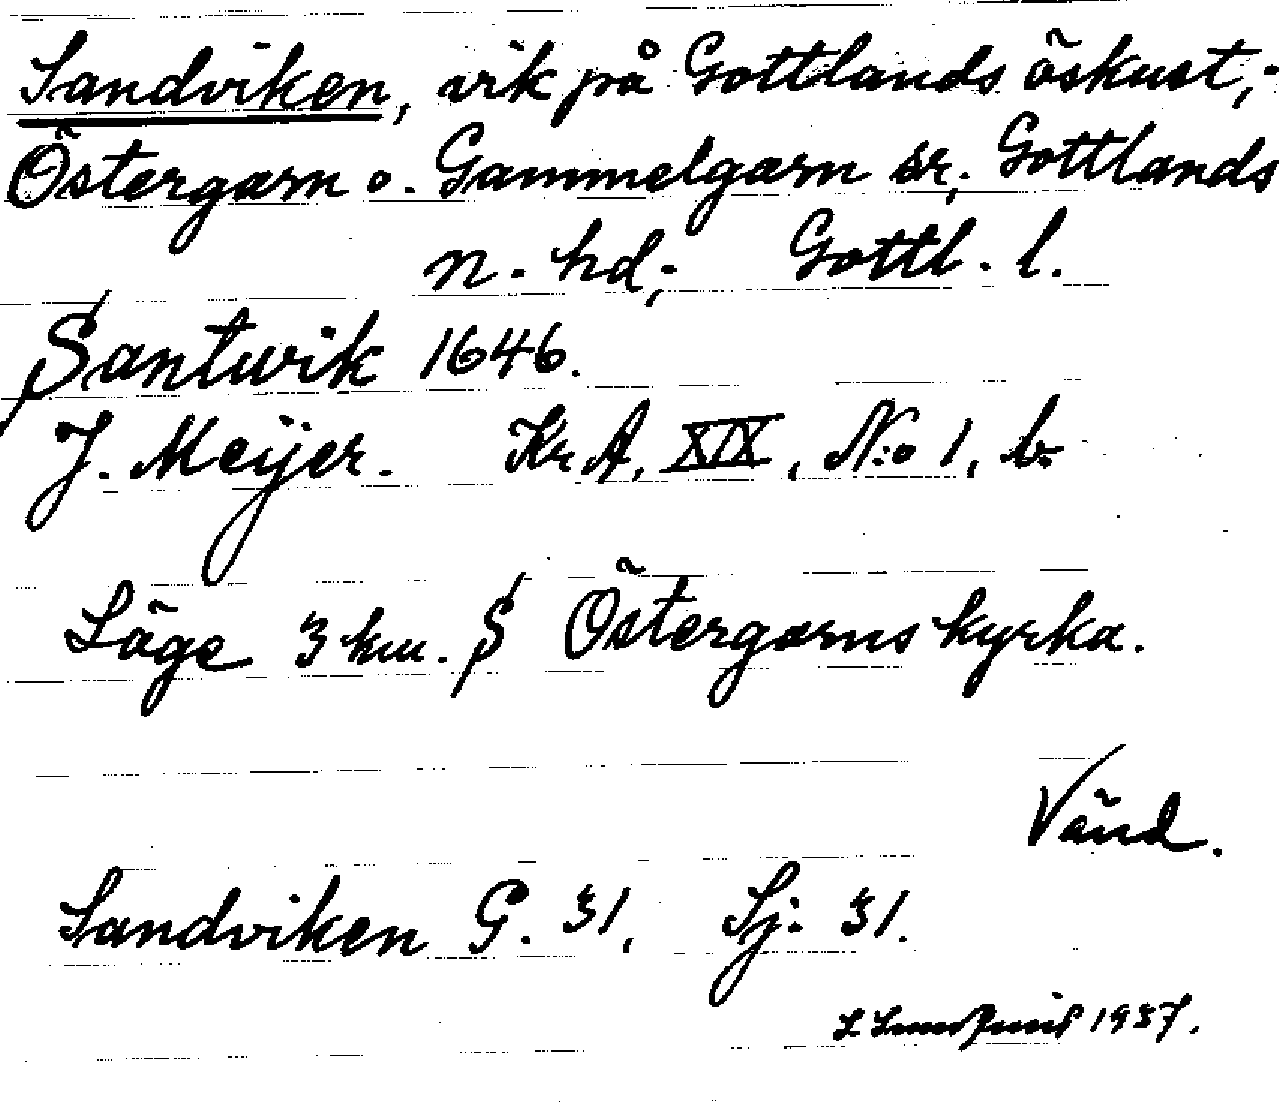 Sandviken, vik på Gottlands öskust,-
Östergarn o. Gammelgarn sr,. Gottlands
n. hd,- Gottl. l.
Santwik 1646.
J. Meijer. Kr A, XIX, N:o 1, b.
Läge 3 km. S Östergarns kyrka.
Vänd.
Sandviken G. 31, Sj: 31.
L Lundquist 1937.